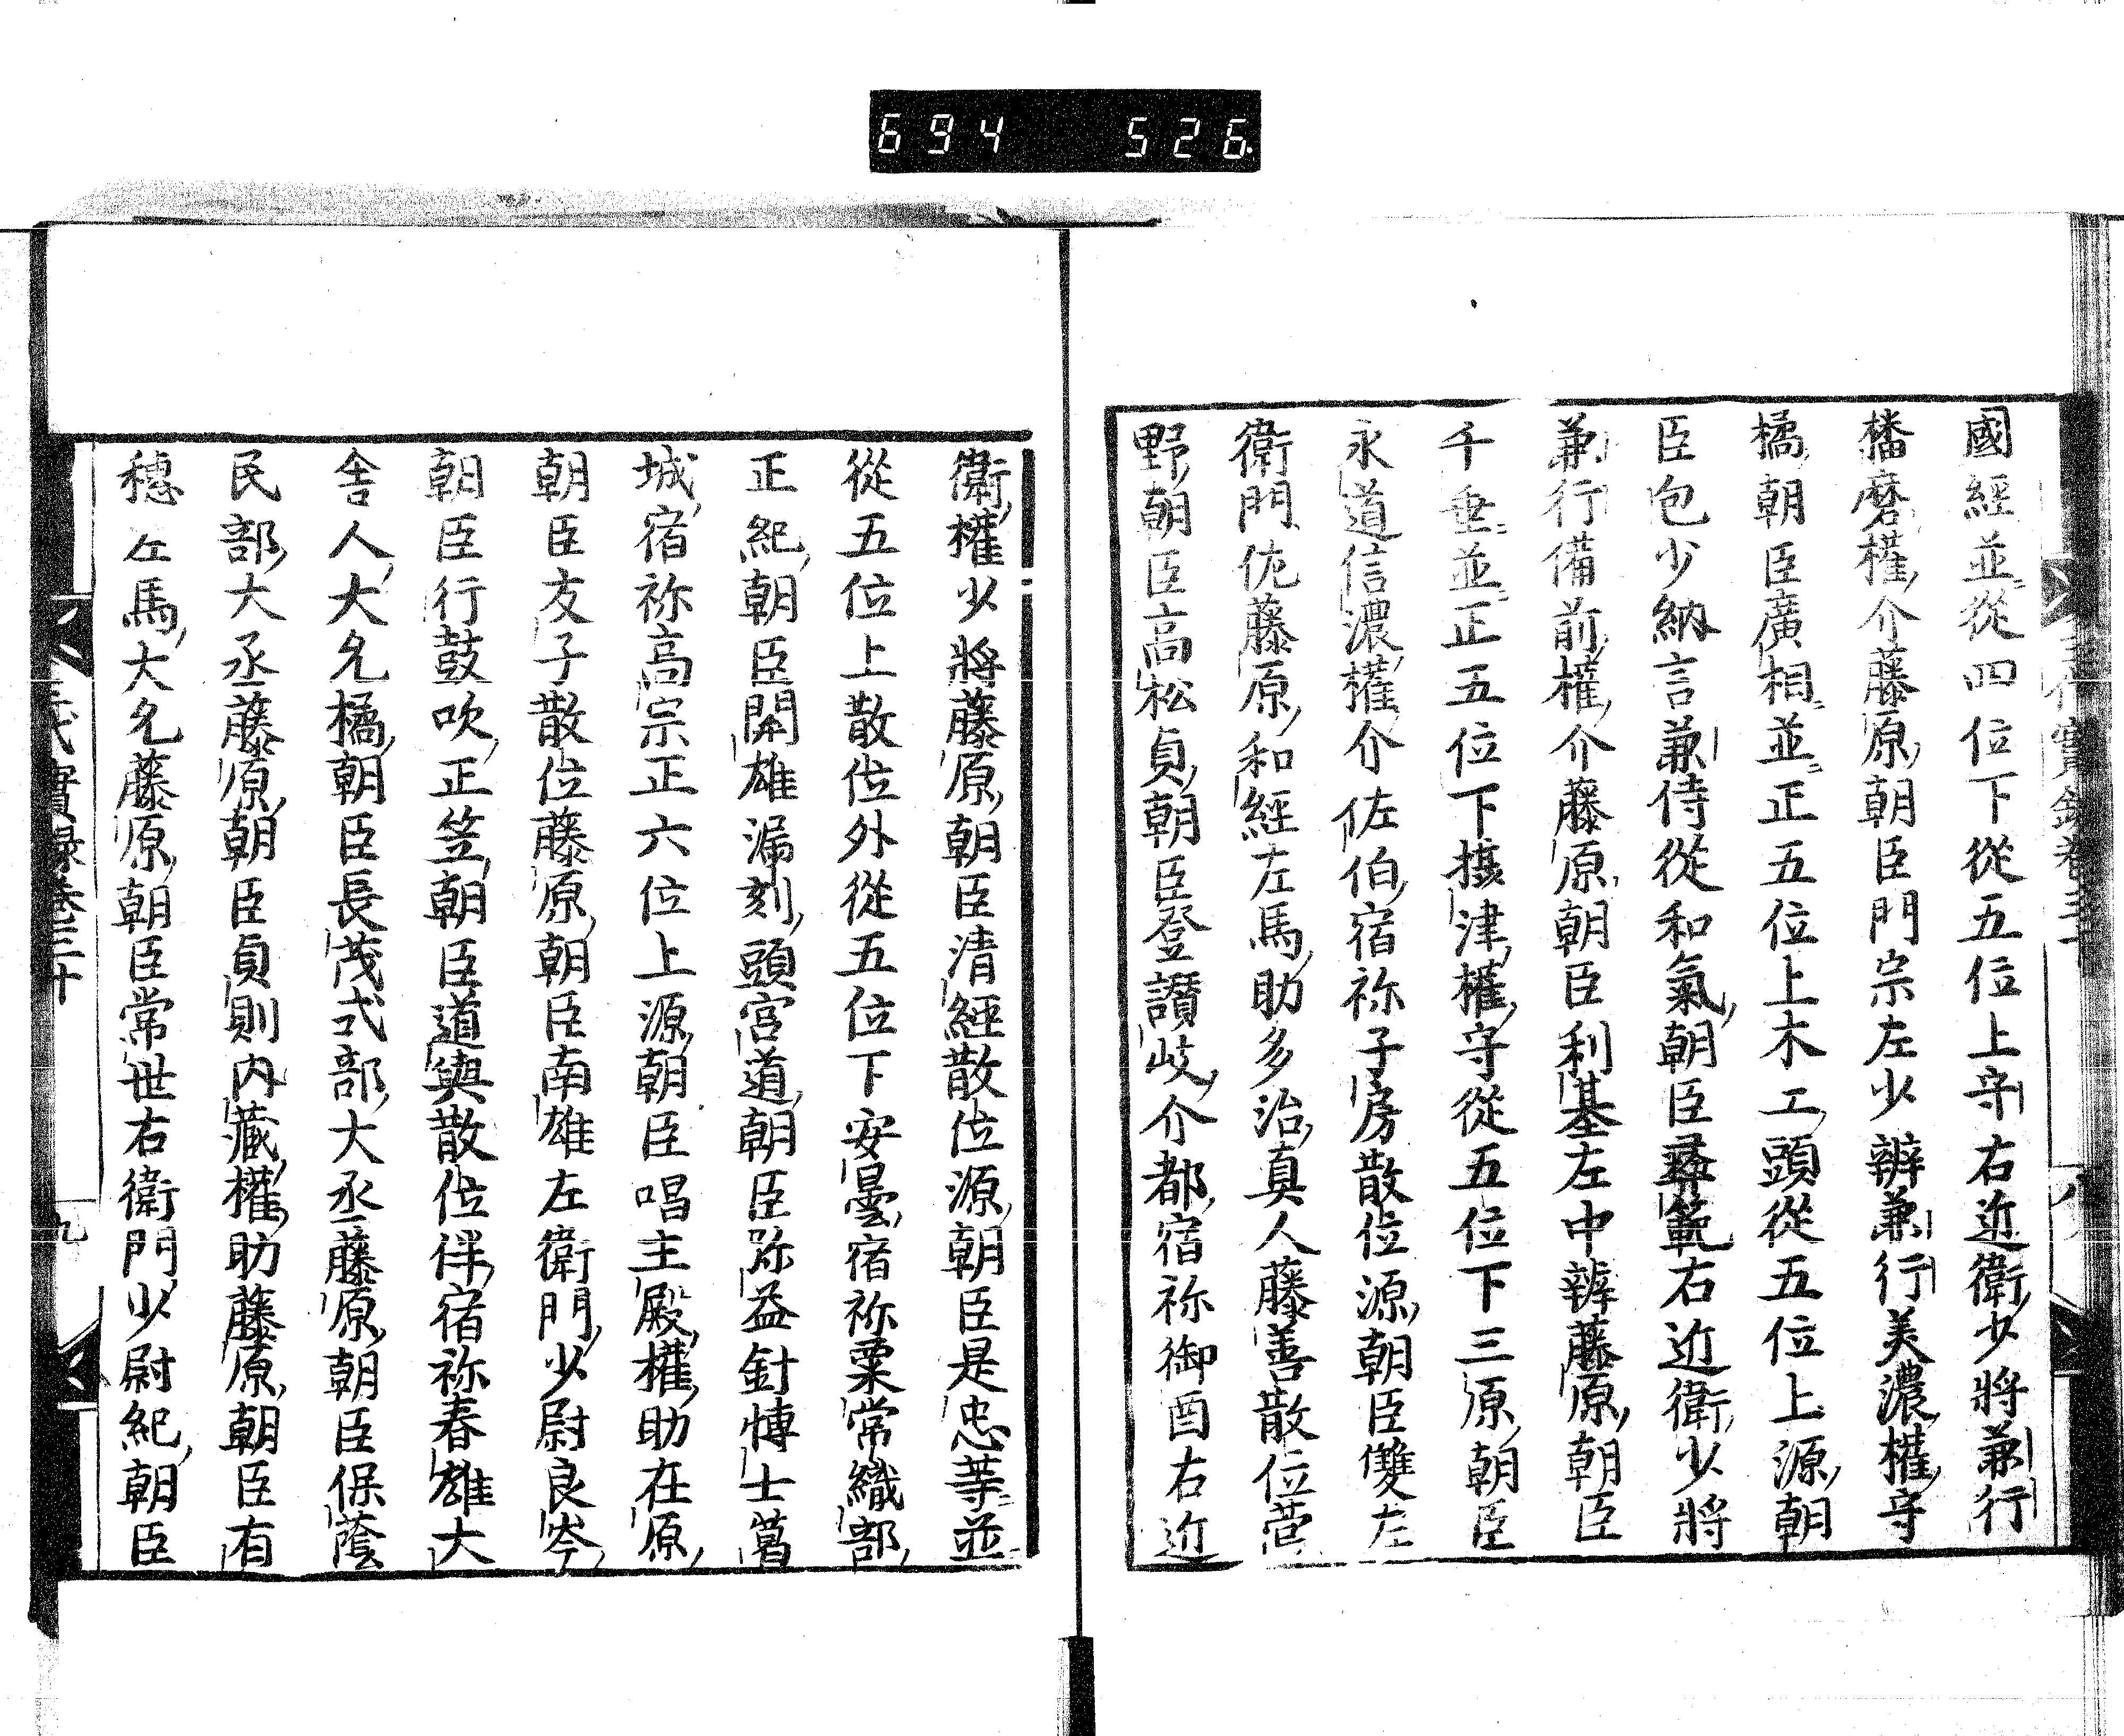 694 526
國經並從四位下從五位上守右近衛少將兼行
播磨權介藤原朝臣門宗左少辨兼行美濃權守
橘朝臣廣相並正五位上木工頭從五位上源朝
臣包少納言兼侍從和氣朝臣彜範右近衛少將
兼行備前權介藤原朝臣利基左中辨藤原朝臣
千乗並正五位下攝津權守從五位下三原朝臣
永道信濃權介佐伯宿祢子房散位源朝臣雙左
衛門佐藤原和經左馬助多治真人藤善散位菅
野朝臣高松貞朝臣登讃岐介都宿祢御酉右近
衛權少將藤原朝臣清經散位源朝臣是忠等並
從五位上散位外從五位下安曇宿祢粟常織部
正紀朝臣開雄漏刻頭宮道朝臣弥益針博士葛
城宿祢高宗正六位上源朝臣唱主殿權助在原
朝臣友子散位藤原朝臣南雄左衛門少尉良岑
朝臣行鼓吹正笠朝臣道興散位伴宿祢春雄大
舍人大允橘朝臣長茂式部大丞藤原朝臣保蔭
民部大丞藤原朝臣貞則内藏權助藤原朝臣有
穗左馬大允藤原朝臣常世右衛門少尉紀朝臣
三代實録卷三十
九